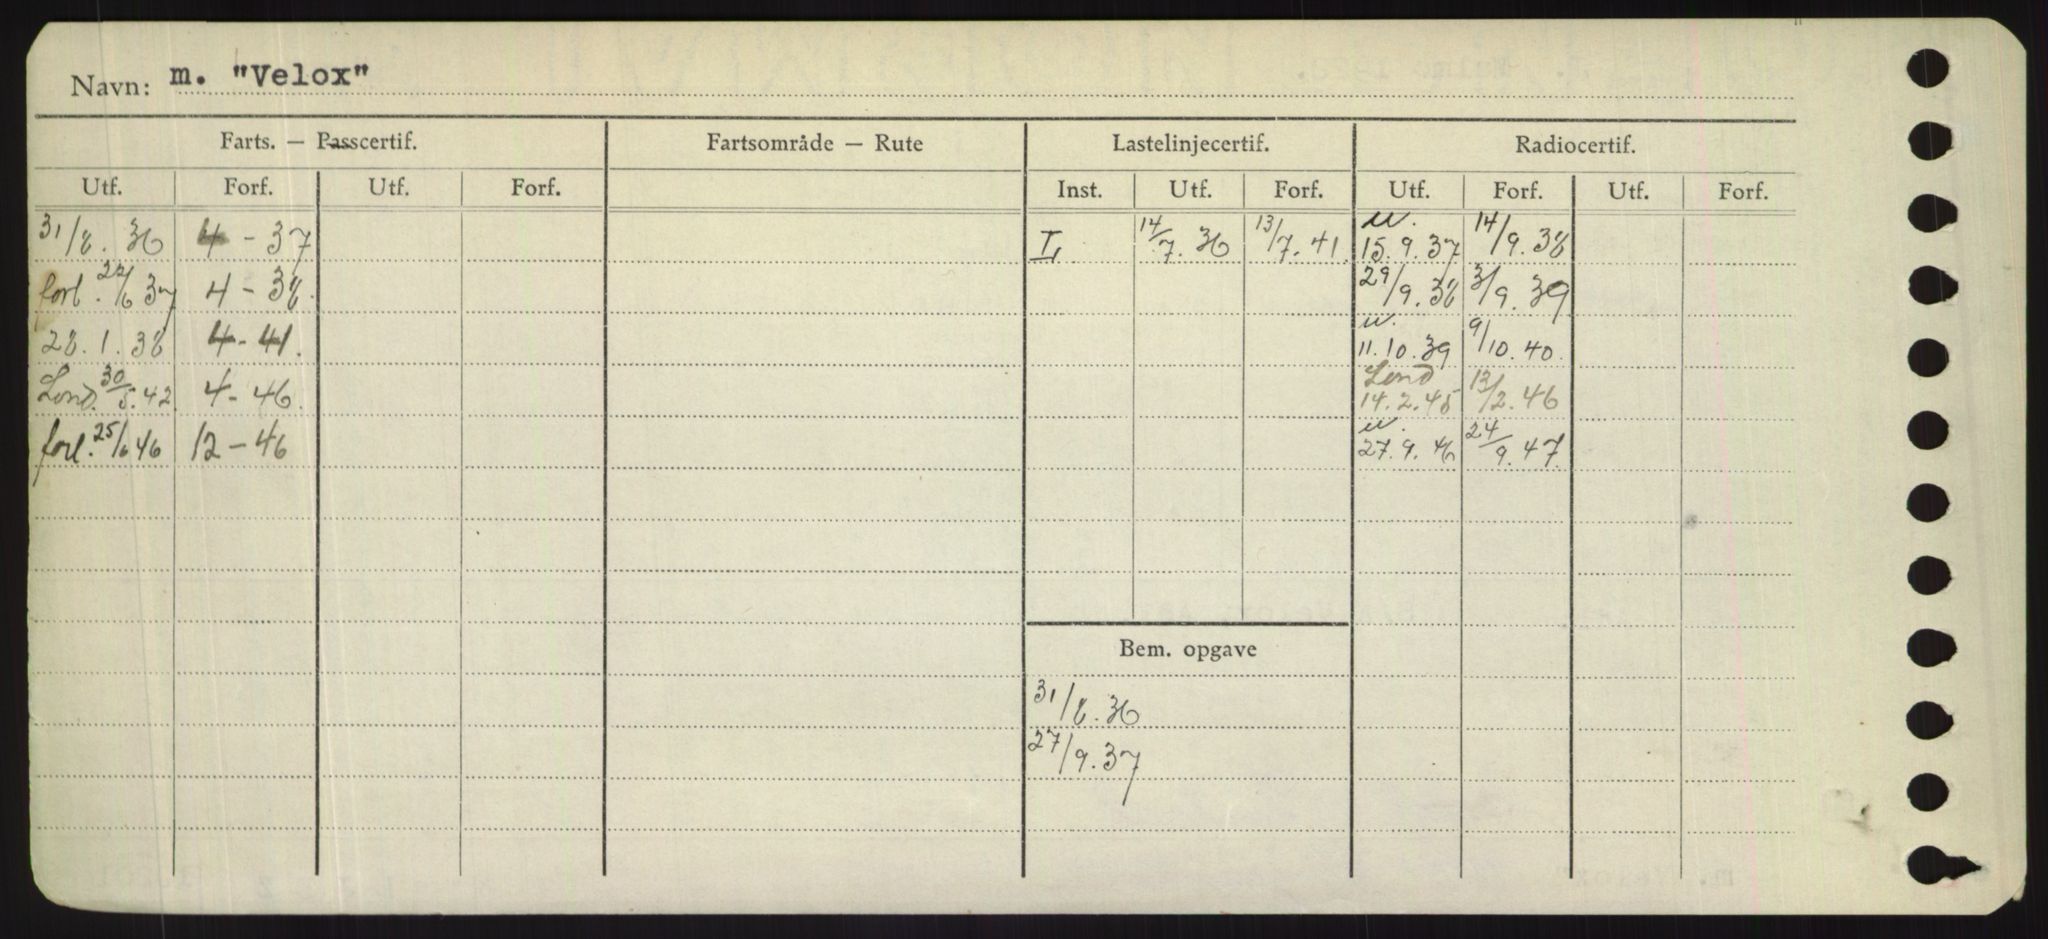 Navn: m. "Velox"
Farts. — Passcertif. Fartsområde — Rute Lastelinjecertif. Radiocertif.
Utf. Forf. Utf. Forf. Inst. Utf. Forf. Utf. Forf. Utf. Forf.
31/8. 36 4 - 37 I 14/7. 36 13/7. 41 u. 15. 9. 37 14/9. 38
forl. 22/6 37 4 - 38. 29/9. 38 3/9. 39
28. 1. 38 4 - 41. u. 11. 10. 39 9/10. 40.
Lond. 30/5. 42 4 - 46. Lond 14. 2. 45 13/2. 46
forl. 25/6 46 12 - 46 u. 27. 9. 46 24/9. 47
Bem. opgave
31/8. 36
27/9. 37